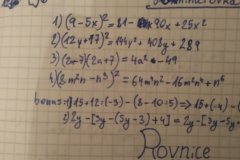 1) (9-5x)² = 81 - 90x + 25x²
2) (12y+17)² = 144y² + 408y + 289
3) (2a+7)(2a+7) = 4a² - 49
4) (8m²n-n³)² = 64m⁴n² - 16m²n⁴ + n⁶
bonus: 1) 15+12:(-3) - (8-10:5) ⇒ 15+(-4) -
2) 2y - [3y - (5y-3)+4] = 2y - [3y - 5y+
Rovnice